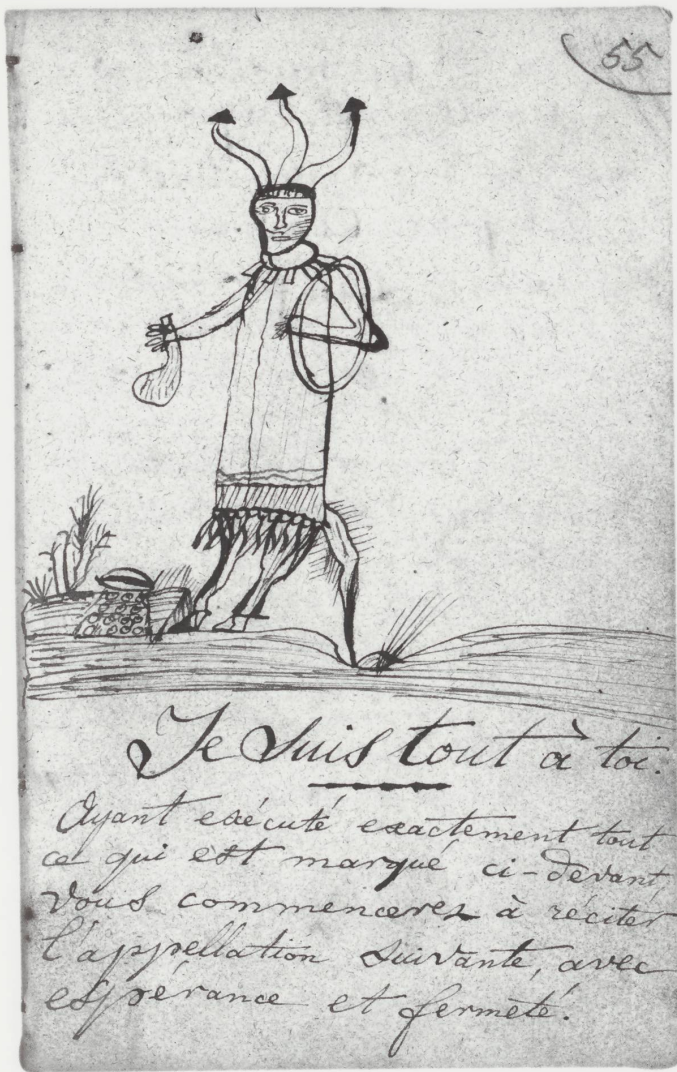 55
Je Suis tout à toi.
Ayant exécuté exactement tout
ce qui est marqué ci-devant,
vous commencerez à réciter
l'appellation suivante, avec
espérance et fermeté.